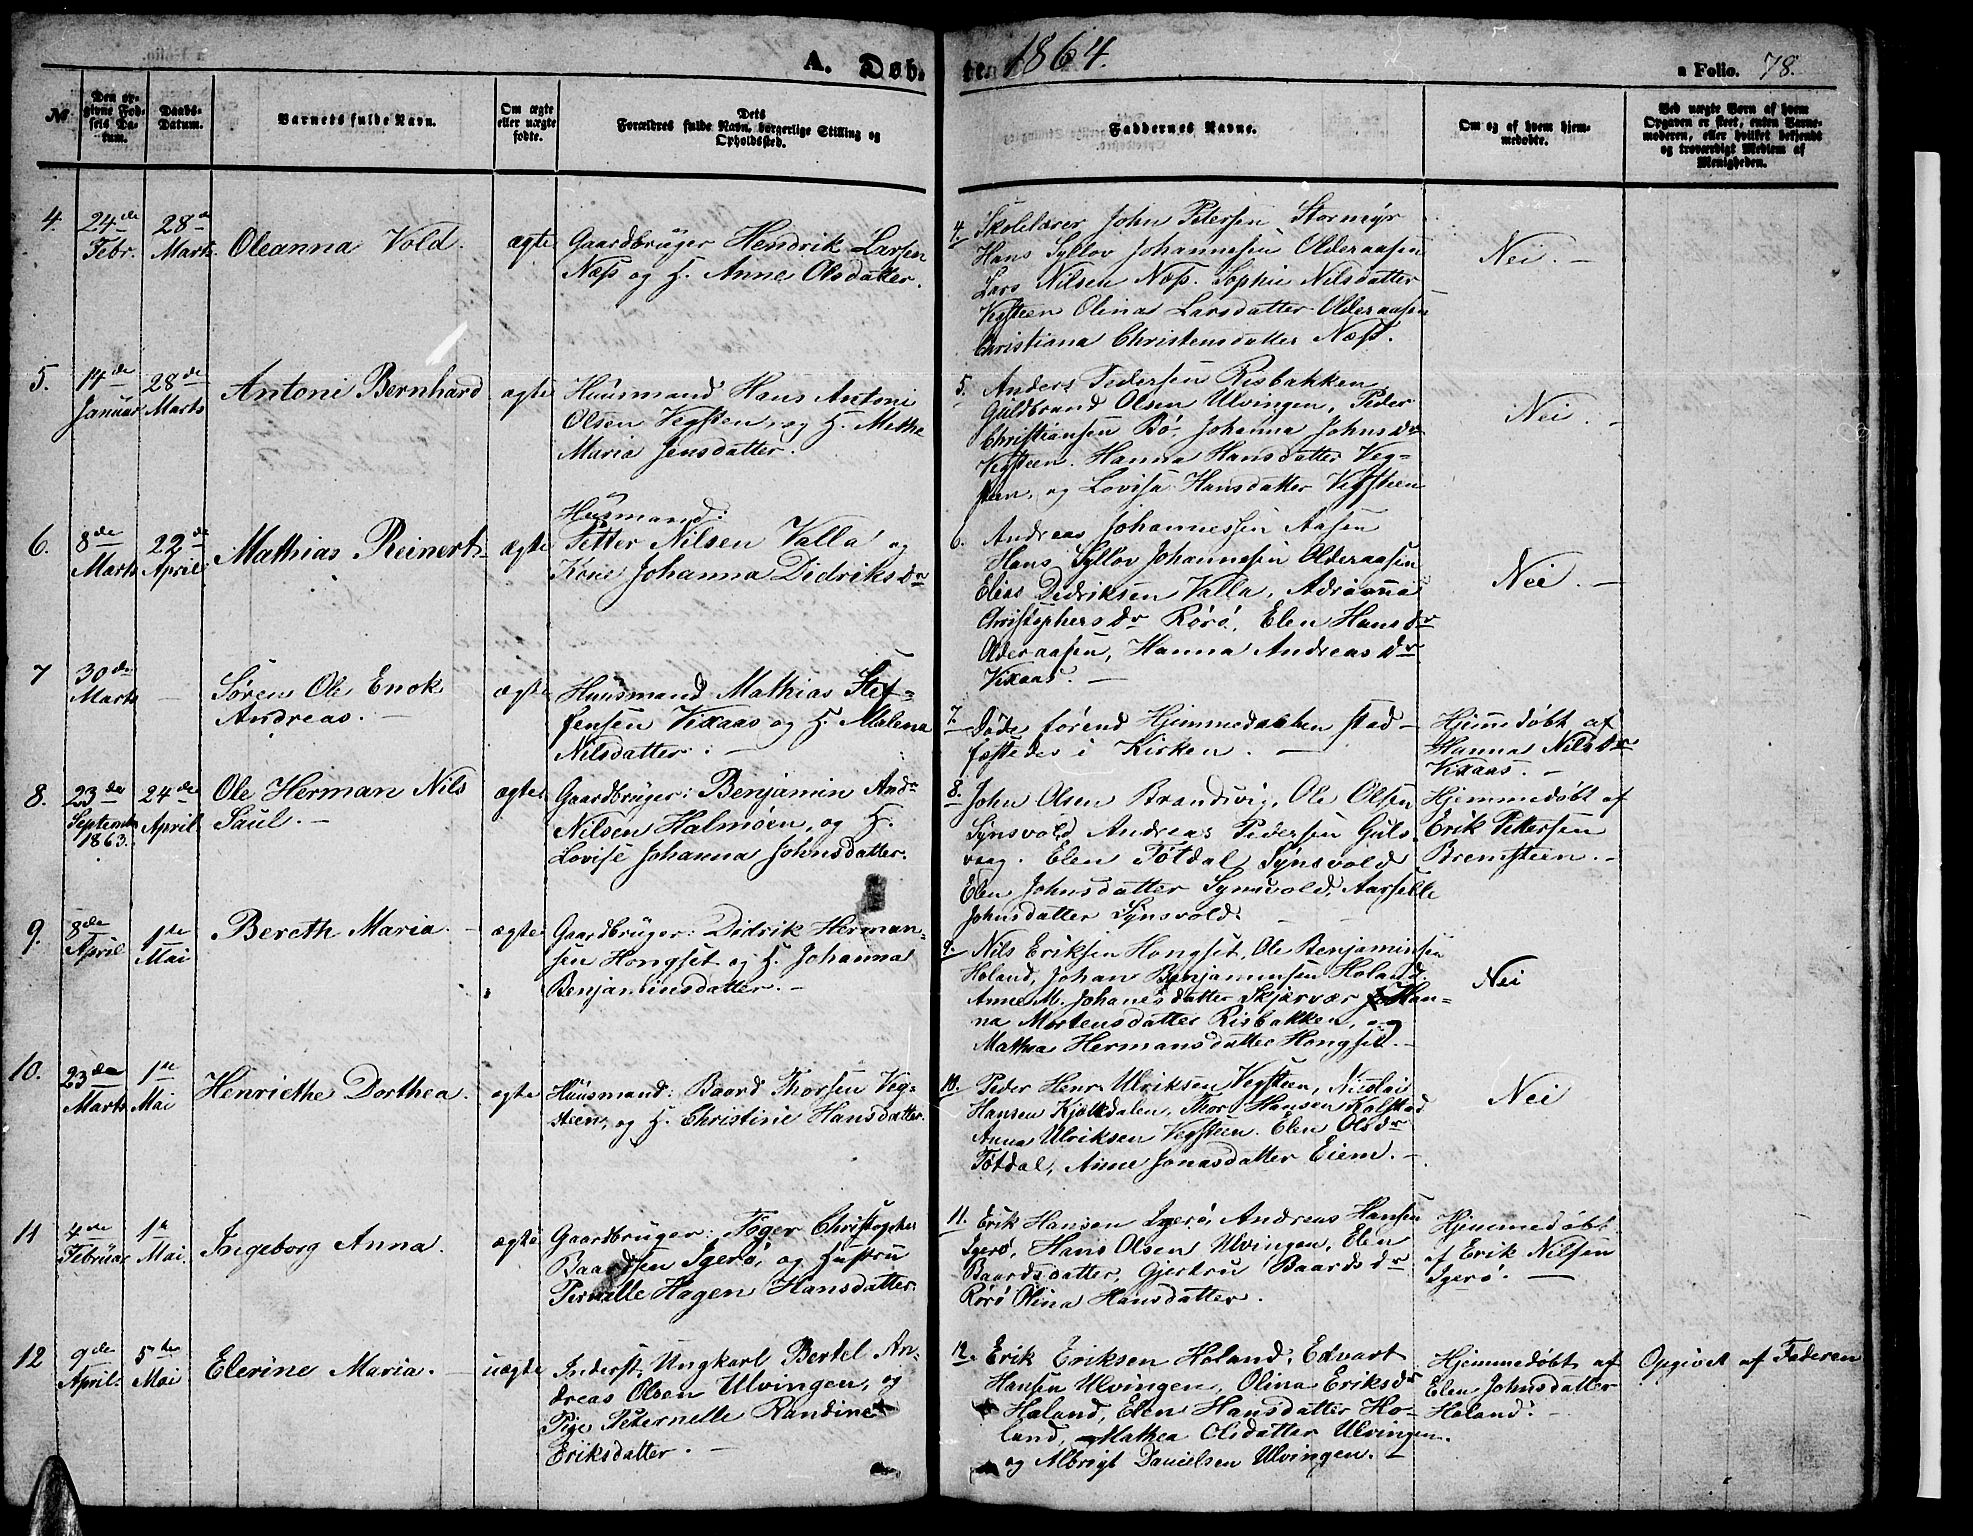 A. Døb-
ten 1864.
a Folio. 78.
No.
Den op-
givne Fød-
sels Da-
tum.
Daabs-
Datum.
Barnets fulde Navn.
Om ægte
eller uægte
fødte.
Dets
Forældres fulde Navn, borgerlige Stilling og
Opholdssted.
Faddernes Navne.
Om og af hvem hjem-
medøbte.
Ved uægte Børn af hvem
Opgaven er skeet, enten Barne-
moderen, eller hvilket bekjendt
og troværdigt Medlem af
Menigheden.
4. 24de Febr. 28de Marts Oleanna Vold. ægte
Gaardbruger Hendrik Larsen
Næss og H. Anne Olsdatter.
4. Skolelærer John Petersen Stormyr
Hans Syllov Johannesen Olderaasen
Lars Nilsen Næss. Sophie Nilsdatter
Vegsteen Olina Larsdatter Olderaasen
Christiana Christensdatter Næss.
Nei. —
5. 14de Januar 28de Marts Antoni Bernhard ægte
Huusmand Hans Antoni
Olsen Vegsten, og H. Methe
Maria Jensdatter.
5. Anders Pedersen Risbakken
Guldbrand Olsen Ulvingen, Peder
Christiansen Rø, Johanna Johnsdr
Vegsteen. Hanna Hansdatter Veg-
steen, og Lovisa Hansdatter Vegsteen
Nei. —
6. 8de Marts 22de April Mathias Reinert ægte
Husmand:
Petter Nilsen Valla og
Kone Johanna Didriksdr
6. Andreas Johannessen Aasen
Hans Syllov Johannesen Olderaasen
Elias Didriksen Valla, Adrianna
Christophersdr Rørø, Elen Hansdr
Olderaasen, Hanna Andreasdr
Vixaas. —
Nei. —
7 30de Marts — Søren Ole Enok
Andreas. — ægte
Huusmand Mathias Stef-
fensen Vixaas og H. Malena
Nilsdatter. —
7. Døde førend Hjemmedaaben stad-
fæstedes i Kirken. —
Hjemmedøbt af
Hanna Nilsdr
Vixaas. —
8. 23de September 1863. 24de April Ole Herman Nils
Paul. — ægte
Gaardbruger: Benjamin Andr
Nilsen Halmøen, og H.
Lovise Johanna Johnsdatter.
8. John Olsen Brandvig, Ole Olsen
Synsvold Andreas Pedersen Guls-
vaag. Elen Tøtdal Synsvold
Elen Johnsdatter Synsvold, Aarselle
Johnsdatter Synsvold.
Hjemmedøbt af
Erik Pettersen
Bremsteen. —
9. 8de April 1te Mai Bereth Maria. — ægte
Gaardbruger: Didrik Herman-
sen Hongset og H. Johanna
Benjaminsdatter. —
9. Nils Eriksen Hongset, Ole Benjaminsen
Holand, Johan Benjaminsen Holand.
Anne M. Johanesdatter Skjærvær Han-
na Mortensdatter Risbakken, og
Mathea Hermansdatter Hongset. —
Nei
10. 23de Marts 1te Mai Henriethe Dorthea. ægte
Huusmand: Baard Thorsen Veg-
steen, og H. Christine Hansdatter.
10. Peder Henr. Ulriksen Vegsteen, Nicolai
Hansen Kjølkdalen, Thor Hansen Kalstad
Anna Ulriksen Vegsteen. Elen Olsdr
Tøtdal, Anne Jonasdatter Eiem. —
Nei
11 4de Februar 1te Mai. Ingeborg Anna. ægte
Gaardbruger: Tøger Christopher
Baardsen Igerø, og Hustru
Pernelle Hagen Hansdatter.
11. Erik Hansen Igerø, Andreas Hansen
Igerø, Hans Olsen Ulvingen, Elen
Baardsdatter, Gjertru Baardsdr
Rørø Olina Hansdatter.
Hjemmedøbt
af Erik Nilsen
Igerø. —
12 9de April. 5te Mai Elerine Maria. — uægte
Inderst, Ungkarl Bertel An-
dreas Olsen Ulvingen, og
Pige Peternelle Randine
Eriksdatter. —
12. Erik Eriksen Holand, Edvart
Hansen Ulvingen, Olina Eriksdr
Holand, Elen Hansdatter Ho-
land, Mathea Olsdatter Ulvingen.
og Albrigt Danielsen Ulvingen. —
Hjemmedøbt af
Elen Johnsdatter
Holand. —
Opgivet af Faderen